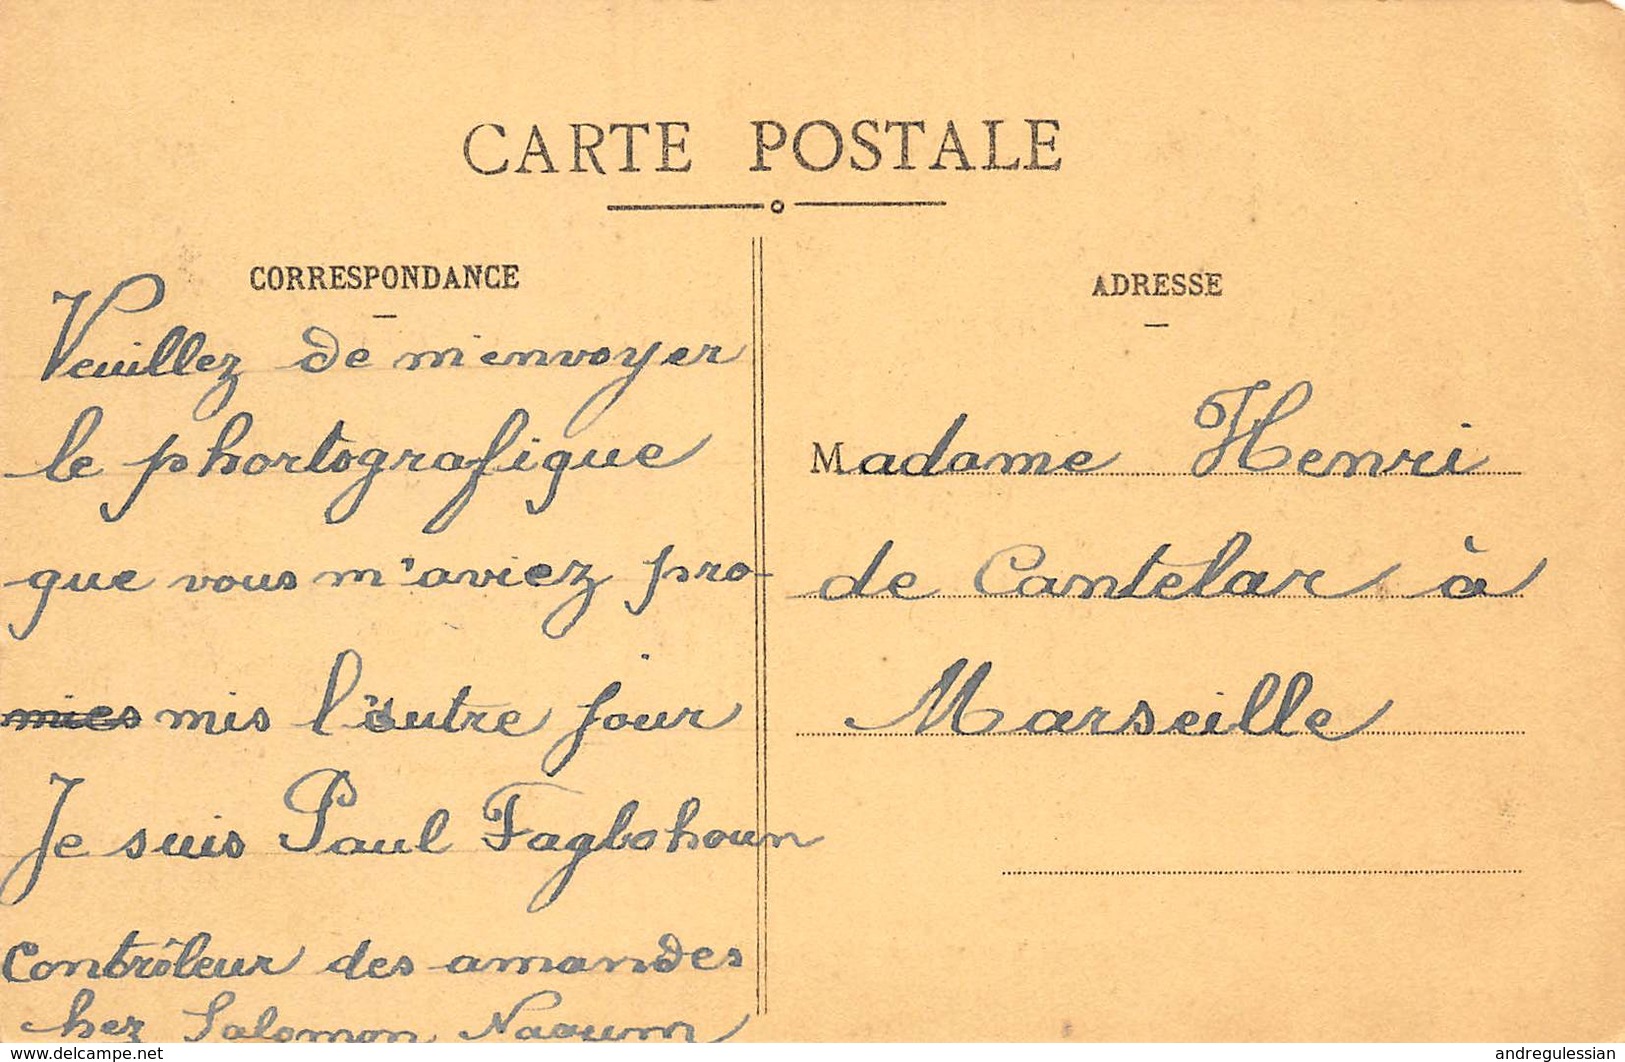 CARTE POSTALE
CORRESPONDANCE
Veuillez de m'envoyer
le phortografique
que vous m'aviez pro-
mies mis l'autre jour
Je suis Paul Fagbohoun
Contrôleur des amandes
hez Salomon Naoum
ADRESSE
Madame Henri
de Cantelar à
Marseille
https://www.delcampe.net
andregulessian